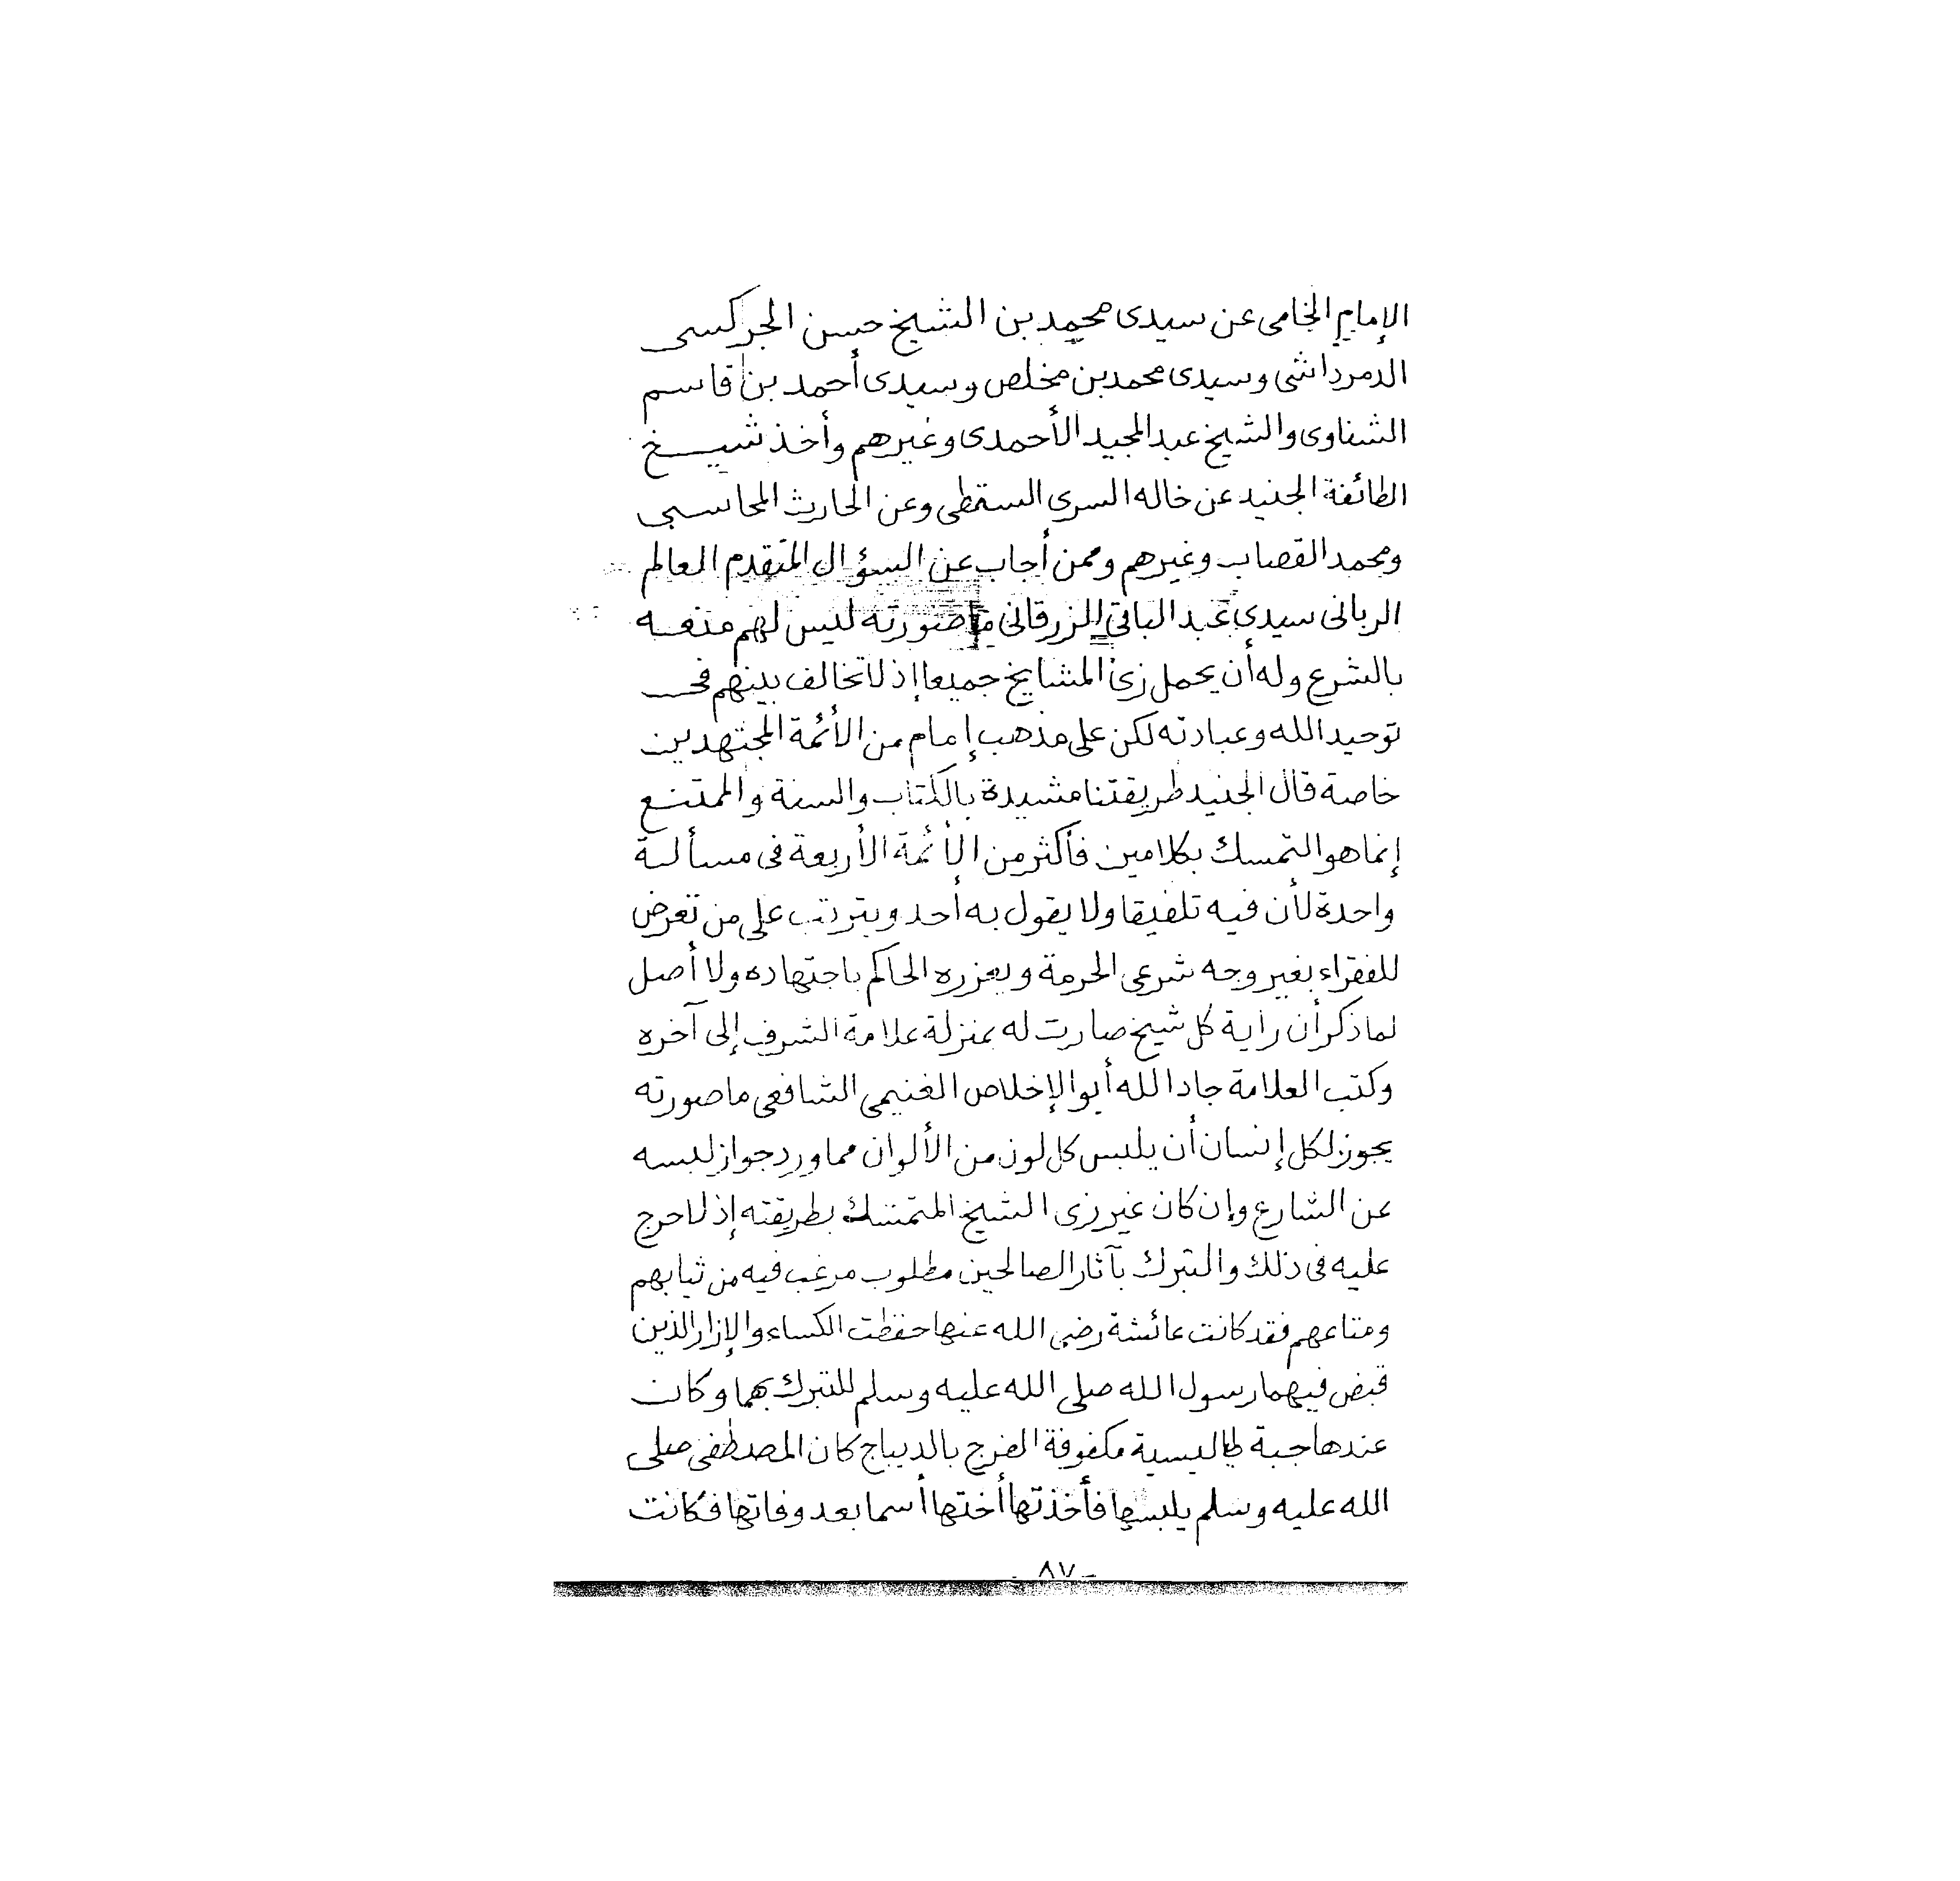 الإمام الخامى عن سيدى محمد بن الشيخ حسن الجركسى
الدمرداشى وسيدى محمد بن مخلص وسيدى أحمد بن قاسم
الشناوى والشيخ عبد المجيد الأحمدى وغيرهم وأخذ شيخ
الطائفة الجنيد عن خاله السرى السقطى وعن الحارث المحاسبى
ومحمد القصاب وغيرهم وممن أجاب عن السؤال المتقدم العالم
الربانى سيدى عبد الباقى الزرقانى ما صورته ليس لهم منعه
بالشرع وله أن يحمل زى المشايخ جميعا إذ لا تخالف بينهم فى
توحيد الله وعبادته لكن على مذهب إمام من الأئمة المجتهدين
خاصة قال الجنيد طريقتنا مشيدة بالكتاب والسنة والممتنع
إنما هو التمسك بكلامين فأكثر من الأئمة الأربعة فى مسألة
واحدة لأن فيه تلفيقا ولا يقول به أحد ويترتب على من تعرض
للفقراء بغير وجه شرعى الحرمة ويعزره الحاكم باجتهاده ولا أصل
لما ذكر أن راية كل شيخ صارت له بمنزلة علامة الشرف إلى آخره
وكتب العلامة جاد الله أبو الإخلاص الغنيمى الشافعى ما صورته
يجوز لكل إنسان أن يلبس كل لون من الألوان مما ورد جواز لبسه
عن الشارع وإن كان غير زى الشيخ المتمسك بطريقته إذ لا حرج
عليه فى ذلك والتبرك بآثار الصالحين مطلوب مرغب فيه من ثيابهم
ومتاعهم فقد كانت عائشة رضى الله عنها حفظت الكساء والإزار الذين
قبض فيهما رسول الله صلى الله عليه وسلم للتبرك بهما وكان
عندها جبة طيالسية مكفوفة الفرج بالديباج كان المصطفى صلى
الله عليه وسلم يلبسها فأخذتها أختها أسما بعد وفاتها فكانت
- ٨٧ -